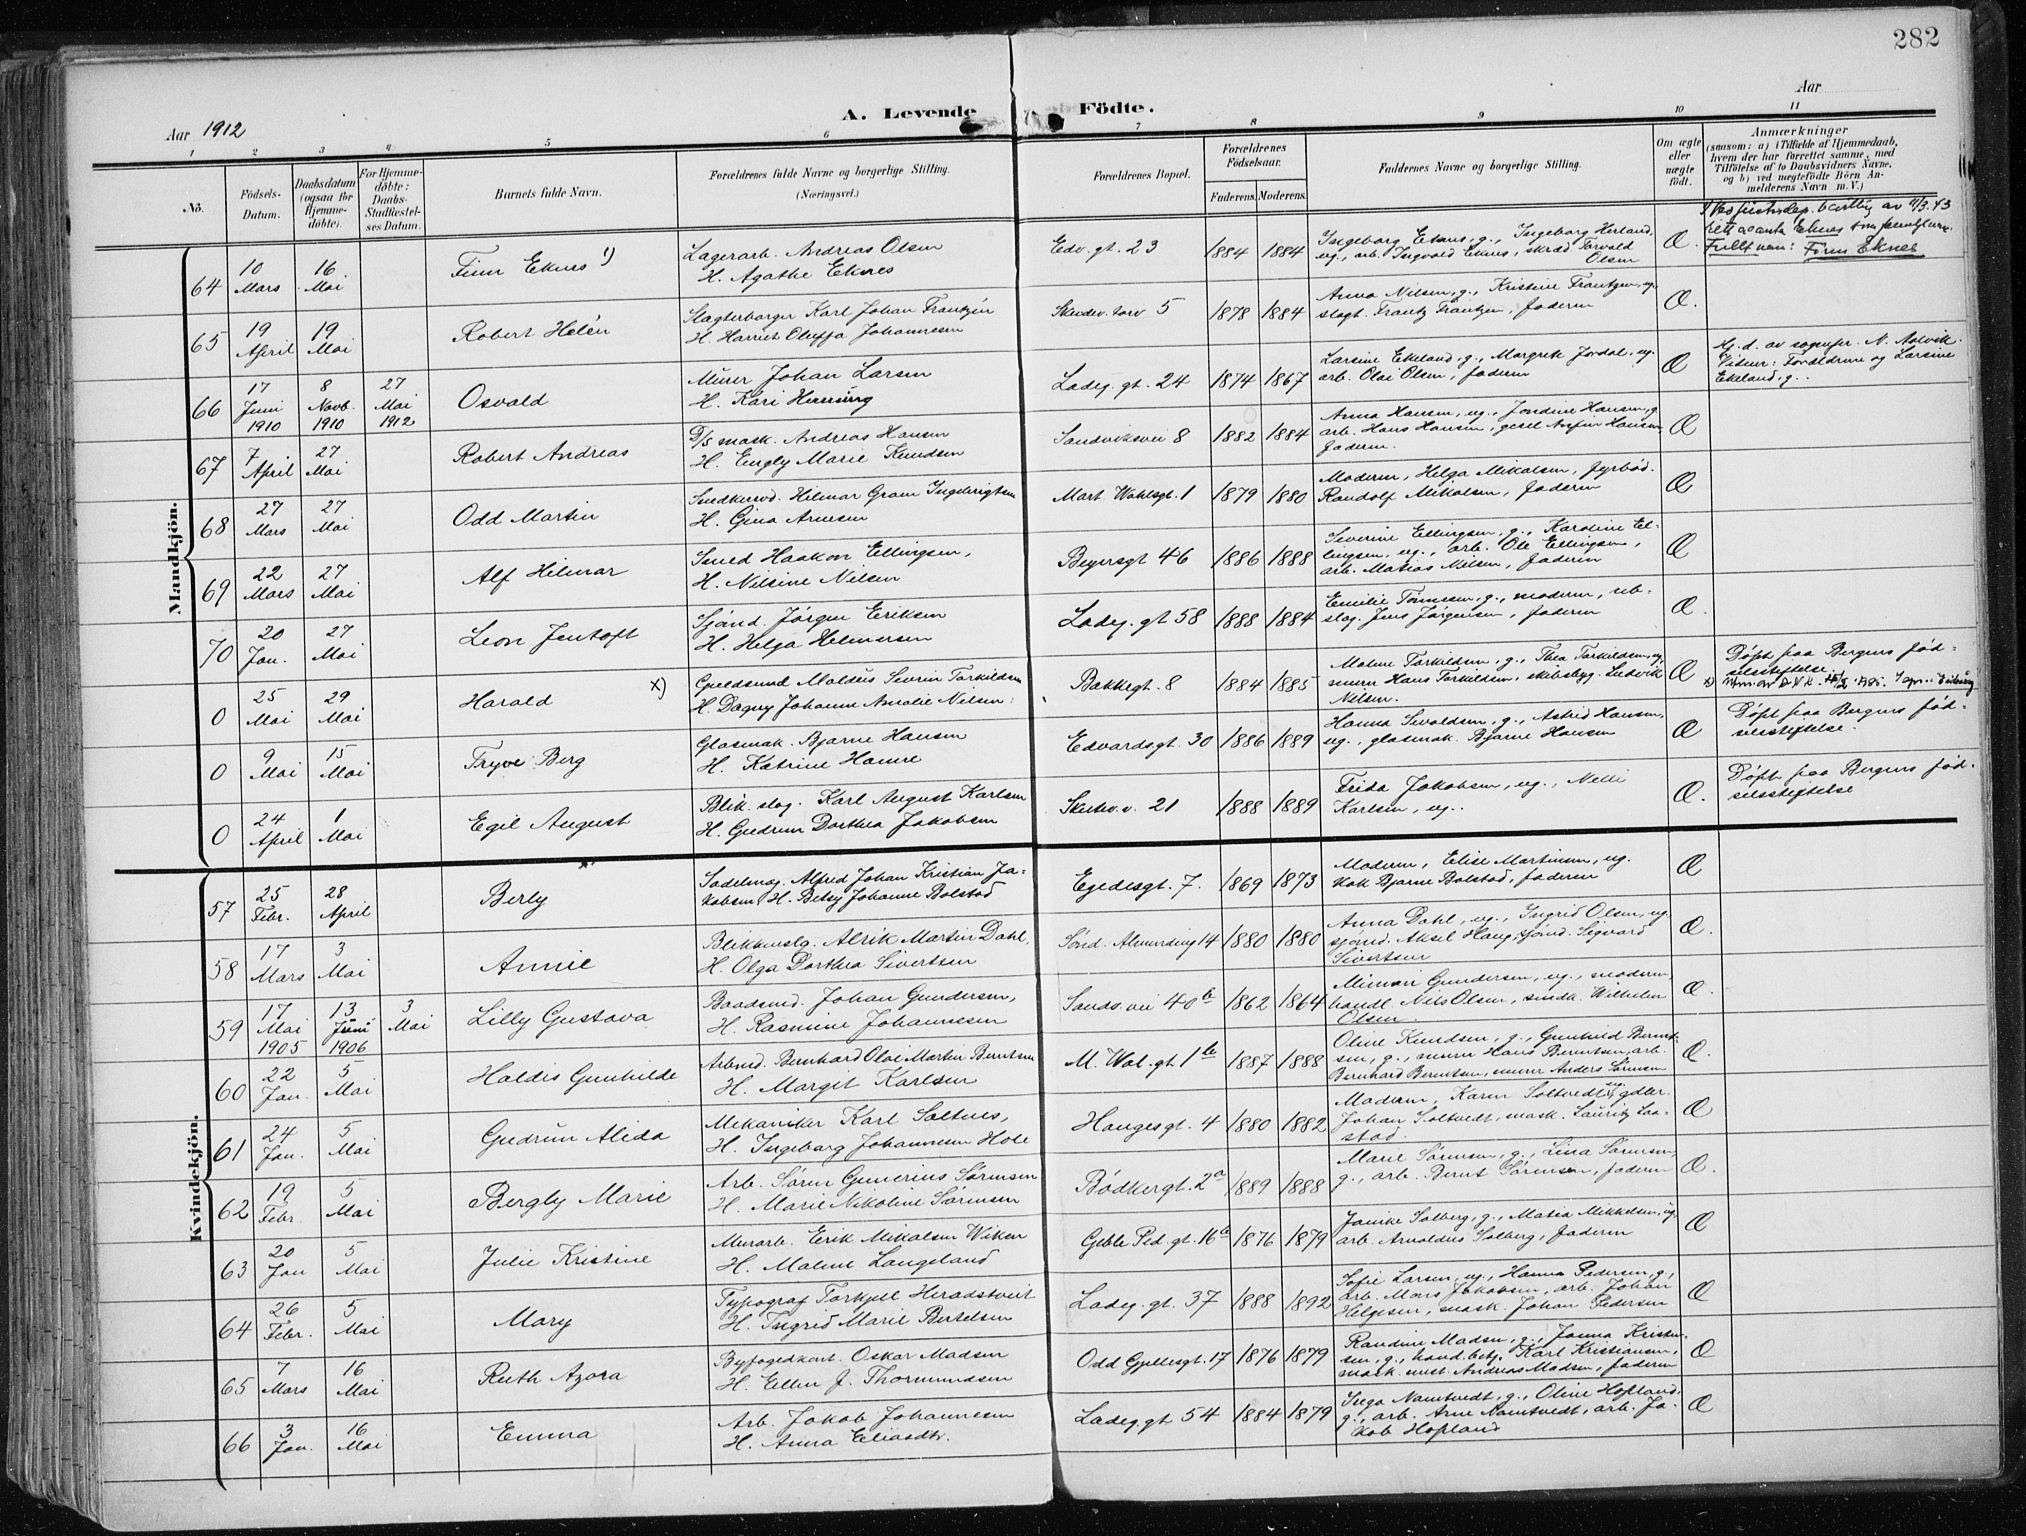 282
Aar 1912
A. Levende Födte.
Aar
1 2 3 4 5 6 7 8 9 10 11
No.
Födsels-Datum.
Daabsdatum (ogsaa for Hjemme-døbte).
For Hjemme-döbte: Daabs-Stadfestel-ses Datum.
Barnets fulde Navn.
Forældrenes fulde Navne og borgerlige Stilling. (Næringsvei.)
Forældrenes Bopæl.
Forældrenes Födselsaar.
Faderens. Moderens.
Faddernes Navne og borgerlige Stilling.
Om ægte eller uægte födt.
Anmærkninger
(saasom: a) i Tilfælde af Hjemmedaab,
hvem der har forrettet samme, med
Tilföielse af to Daabsvidners Navne,
og b) ved uægtefödte Börn An-
melderens Navn m. V.)
Mandkjön.
64 10 Mars 16 Mai Finn Eknes 1) Lagerarb. Andreas Olsen
H. Agathe Eknes
Edv. gt. 23 1884 1884 Ingeborg Eknes, g., Ingeborg Herland,
ug., arb. Ingvald Eknes, skræd. Torvald
Olsen Æ.
Fullt navn: Finn Eknes
65 19 April 19 Mai Robert Helén Slagterborger Karl Johan Frantzen
H. Harriet Oleffa Johannesen
Skudev. torv 5 1878 1884 Anna Nilsen, g., Kristine Frantzen, ug.
slagt. Frantz Frantzen, faderen Æ.
66 17 Juni 1910 8 Novb. 1910 27 Mai 1912 Osvald Murer Johan Larsen
H. Kari Henning
Ladeg. gt. 24 1874 1867 Larsine Ekeland, g., Margrete Jordal, ug.
arb. Olai Olsen, faderen Æ
Hj. d. av sognepr. N. Nalvik.
Vidner: Forældrene og Larsine
Ekeland, g.
67 7 April 27 Mai Robert Andreas D/s mask. Andreas Hansen
H. Engly Marie Knudsen
Sandviksvei 8 1882 1884 Anna Hansen, ug., Jondine Hansen, g.
arb. Hans Hansen, gesel Hansen,
faderen. Æ
68 27 Mars 27 Mai Odd Martin Snedkersv. Hilmar Gram Ingebrigtsen
H. Gina Arnesen
Mart Wahlsgt. 1 1879 1880 Moderen, Helga Mikalsen, fyrbød.
Randolf Mikalsen, faderen Æ
69 22 Mars 27 Mai Alf Hilmar Smed Haakon Ellingsen,
H. Nilsine Nilsen
Beyersgt 46 1886 1888 Severine Ellingsen, g., Karoline El-
lingsen, ug., arb. Ole Ellingsen,
arb. Matias Nilsen, faderen Æ
70 20 Jan. 27 Mai Leon Jentoft Sjömd. Jörgen Eriksen
H. Helga Helmersen
Ladeg. gt 58 1888 1884 Emilie Tönnesen, g., moderen, rib-
slag. Jens Jörgensen, faderen Æ
0 25 Mai 29 Mai Harald x) Guldsmed Maldus Severin Torkildsen
H. Dagny Johanne Amalie Nilsen
Bakkegt. 8 1884 1885 Malene Torkildsen, g., Thea Torkildsen, ug,
murer Hans Torkildsen, skibsbygg. Ludvik
Nilsen. Æ
Döpt paa Bergens föd-
selsstiftelse.
0 9 Mai 15 Mai Tryve Berg Glasmak. Bjarne Hansen
H. Katrine Hamre
Edvardsgt. 30 1886 1889 Hanna Sevaldsen, g., Astrid Hansen,
ug., glasmak. Bjarne Hansen Æ
Döpt paa Bergens föd-
selsstiftelse.
0 24 April 1 Mai Egil August Blik. slag. Karl August Karlsen
H. Gudrun Dorthea Jakobsen
Skutev. v. 21 1888 1889 Frida Jakobsen, ug., Nelli
Karlsen, ug. Æ.
Döpt paa Bergens föd-
selsstiftelse
Kvindekjön.
57 25 Febr. 28 April Berly Sadelmag. Alfred Johan Kristian Ja-
kobsen H. Betsy Johanne Bolstad
Egedesgt. 7 1869 1873 Moderen, Elise Martinsen, ug.
kok Bjarne Bolstad, faderen Æ
58 17 Mars 3 Mai Annie Blikkenslg. Alrik Martin Dahl,
H. Olga Dorthea Sivertsen
Sönd. Almending 14 1880 1880 Anna Dahl, ug., Ingrid Olsen, ug.
sjömd. Aksel Haug, sjömd. Sigvard
Sivertsen Æ.
59 17 Mai 1905 13 Juni 1906 3 Mai Lilly Gustava Baadsmd. Johan Gundersen,
H. Rasmine Johannesen
Sands. vei 40 b 1862 1864 Gundersen, ug., moderen,
handl. Nils Olsen, smdk. Wilhelm
Olsen. Æ.
60 22 Jan. 5 Mai Haldis Gunhilde Arbmd. Bernhard Olai Martin Berntsen
H. Margit Karlsen
M. Wal. gt. 1 b 1887 1888 Oline Knudsen, g., Gunhild Bernt-
sen, g., murer Hans Berntsen, arb.
Bernhard Berntsen, murer Anders Sörensen Æ.
61 24 Jan. 5 Mai Gudrun Alida Mekaniker Karl Saltnes,
H. Ingeborg Johannesen Hole
Haugesgt. 4 1880 1882 Moderen, Karen Soltvedt, ug., gdbr.
Johan Soltvedt, mask. Lauritz Laa-
stad. Æ
62 19 Febr. 5 Mai Bergly Marie Arb. Sören Gunerius Sörensen
H. Marie Nikoline Sörensen
Bödkergt. 2 a 1889 1888 Marie Sörensen, g., Lina Sörensen,
g., arb. Bernt Sörensen, faderen Æ.
63 20 Jan 5 Mai Julie Kristine Murarb. Erik Mikalsen Wiken
H. Malene Langeland
Geble Ped. gt. 16 b 1876 1879 Janike Solberg, g., Matia Mikkelsen, ug,
arb. Arnoldus Solberg, faderen Æ
64 26 Febr. 5 Mai Mary Typograf Torkjell Heradstveit
H. Ingrid Marie Bertelsen
Ladeg. gt. 37 1888 1892 Sofie Larsen, ug., Hanna Pedersen, g.,
arb. Mons Jakobsen, arb. Johan
Helgesen, mask. Johan Pedersen Æ
65 7 Mars 16 Mai Ruth Azora Byfogedkont. Oskar Madsen
H. Ellen J. Thormundsen
Odd Gjellesgt. 17 1876 1879 Randine Madsen, g., Janna Kristen-
sen, g., hand.betj. Karl Kristiansen,
mask. mest. Andreas Madsen, faderen Æ
66 3 Jan. 16 Mai Emma Arb. Jakob Johannesen
H. Anna Eliasdtr.
Ladeg. gt 54 1884 1879 Inga Namtvedt, g., Oline Hopland,
g., arb. Arne Namtvedt, arb. Ja-
kob Hopland Æ